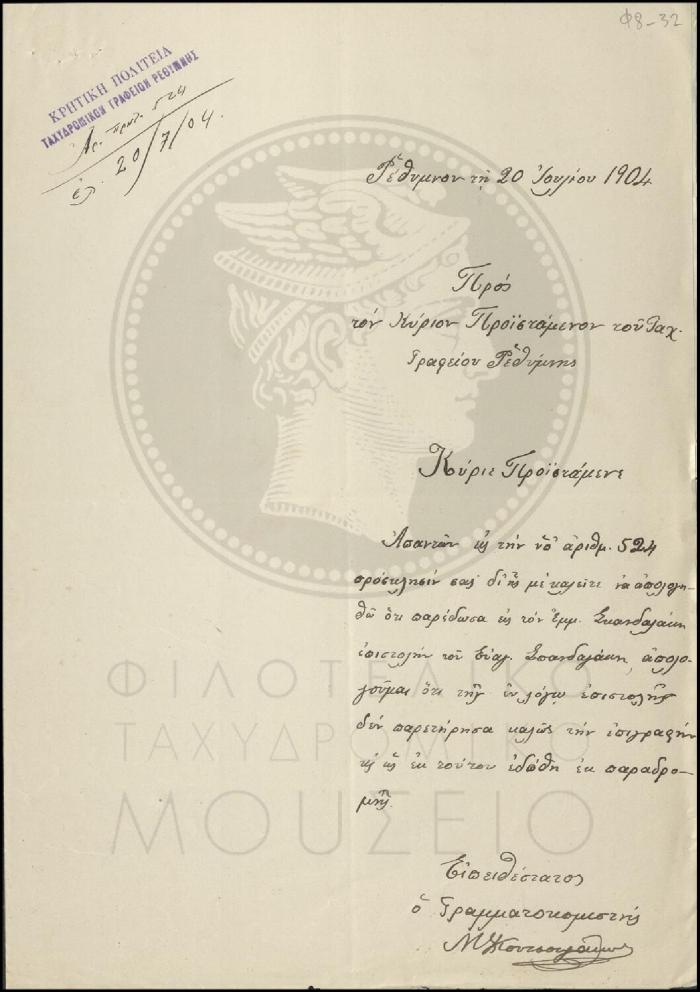 Φ8-32
ΚΡΗΤΙΚΗ ΠΟΛΙΤΕΙΑ
ΤΑΧΥΔΡΟΜΙΚΟΝ ΓΡΑΦΕΙΟΝ ΡΕΘΥΜΝΗΣ
Ἀρ. πρωτ. 524
ἐλ. 20/7/04.
Ῥέθυμνον τῇ 20 Ἰουλίου 1904
Πρὸς
τὸν Κύριον Προϊστάμενον τοῦ Ταχ.
Γραφείου Ῥεθύμνης
Κύριε Προϊστάμενε
Ἀπαντῶν εἰς τὴν ὑπ' ἀριθμ. 524
πρόσκλησίν σας δι' ἧς μὲ καλεῖτε νὰ ἀπολογη-
θῶ ὅτι παρέδωσα εἰς τὸν Ἐμμ. Σκανδαλάκη
ἐπιστολὴν τοῦ Εὐαγ. Σπανδαγάκη, ἀπολο-
γοῦμαι ὅτι τῆς ἐν λόγῳ ἐπιστολῆς
δὲν παρετήρησα καλῶς τὴν ἐπιγραφὴν
ἐκ τούτου ἐδόθη ἐκ παραδρο-
μῆς.
Εὐπειθέστατος
ὁ Γραμματοκομιστής
ΦΙΛΟΤΕΛΙΚΟ
ΤΑΧΥΔΡΟΜΙΚΟ
ΜΟΥΣΕΙΟ